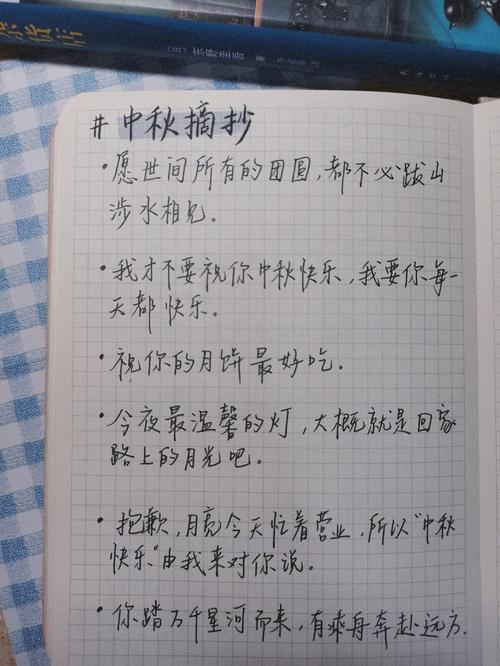 [日] 东野圭吾 著
# 中秋摘抄
·愿世间所有的团圆,都不必跋山
涉水相见。
·我才不要祝你中秋快乐,我要你每一
天都快乐。
·祝你的月饼最好吃.
·今夜最温馨的灯,大概就是回家
路上的月光吧。
·抱歉,月亮今天忙着营业,所以"中秋
快乐"由我来对你说。
·你踏万千星河而来,有乘舟奔赴远方.